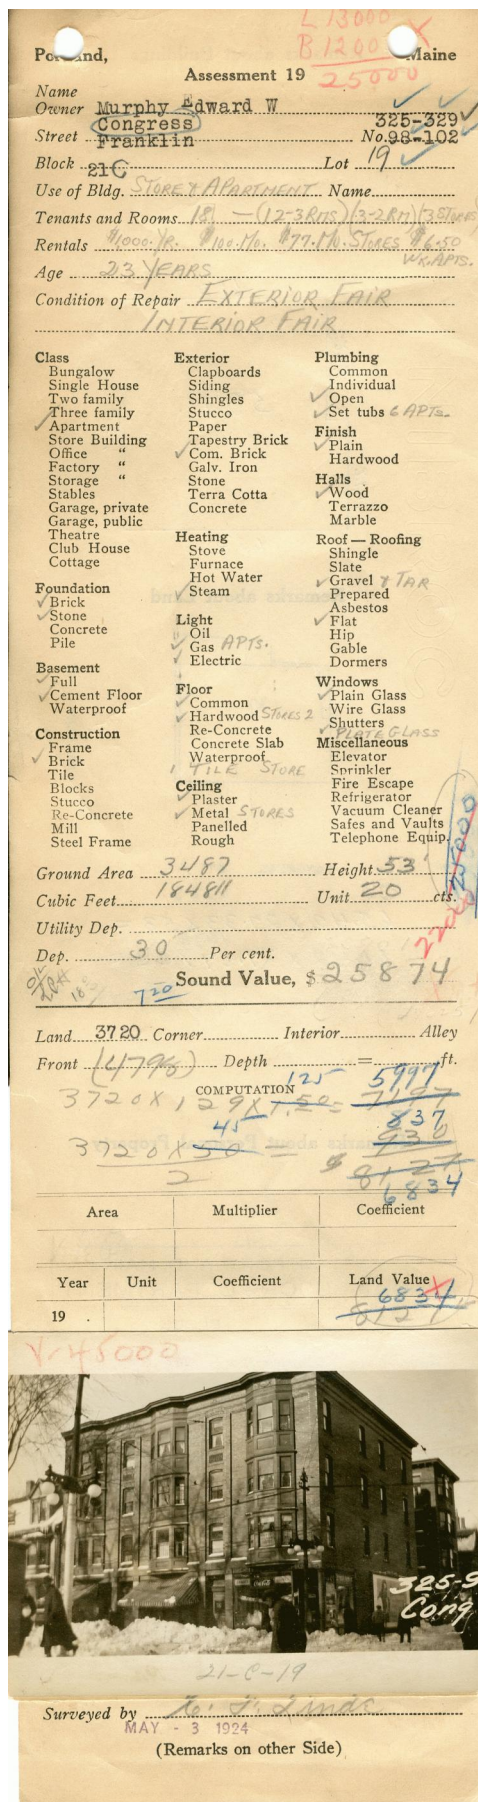 L 13000
B 12000
25000
Portland, Maine
Assessment 19
Name
Owner Murphy Edward W
Congress 325-329
Street Franklin No. 98-102
Block 21C Lot 19
Use of Bldg. STORE & APARTMENT Name
Tenants and Rooms 18 — (12-3RMS) (3-2RM) (3 STORES
Rentals $1000.YR. $100.MO. $77.MO. STORES $6.50
WK. APTS.
Age 23 YEARS
Condition of Repair EXTERIOR FAIR
INTERIOR FAIR
Class
Bungalow
Single House
Two family
Three family
✓ Apartment
Store Building
Office "
Factory "
Storage "
Stables
Garage, private
Garage, public
Theatre
Club House
Cottage
Foundation
✓ Brick
✓ Stone
Concrete
Pile
Basement
✓ Full
✓ Cement Floor
Waterproof
Construction
Frame
✓ Brick
Tile
Blocks
Stucco
Re-Concrete
Mill
Steel Frame
Exterior
Clapboards
Siding
Shingles
Stucco
Paper
Tapestry Brick
✓ Com. Brick
Galv. Iron
Stone
Terra Cotta
Concrete
Heating
Stove
Furnace
Hot Water
✓ Steam
Light
✓ Oil
✓ Gas APTS.
✓ Electric
Floor
✓ Common
✓ Hardwood STORES 2
Re-Concrete
Concrete Slab
Waterproof
1 TILE STORE
Ceiling
✓ Plaster
✓ Metal STORES
Panelled
Rough
Plumbing
Common
Individual
✓ Open
✓ Set tubs 6 APTS.
Finish
✓ Plain
Hardwood
Halls
✓ Wood
Terrazzo
Marble
Roof — Roofing
Shingle
Slate
✓ Gravel & TAR
Prepared
Asbestos
✓ Flat
Hip
Gable
Dormers
Windows
✓ Plain Glass
Wire Glass
Shutters
✓ PLATE GLASS
Miscellaneous
Elevator
Sprinkler
Fire Escape
Refrigerator
Vacuum Cleaner
Safes and Vaults
Telephone Equip.
Ground Area 3487 Height 53'
Cubic Feet 184811 Unit 20 cts.
Utility Dep.
Dep. 30 Per cent.
Sound Value, $ 25874
720
Land 3720 Corner Interior Alley
Front (4796) Depth = ft.
125 5997
COMPUTATION
3720 X 129 X 1.50 = 7197
45 837
3720 X 50 = 930
2 $ 8127
6834
Area Multiplier Coefficient
Year Unit Coefficient Land Value
6834
19 . 8127
V-45000
Cong
21-C-19
Surveyed by
MAY - 3 1924
(Remarks on other Side)